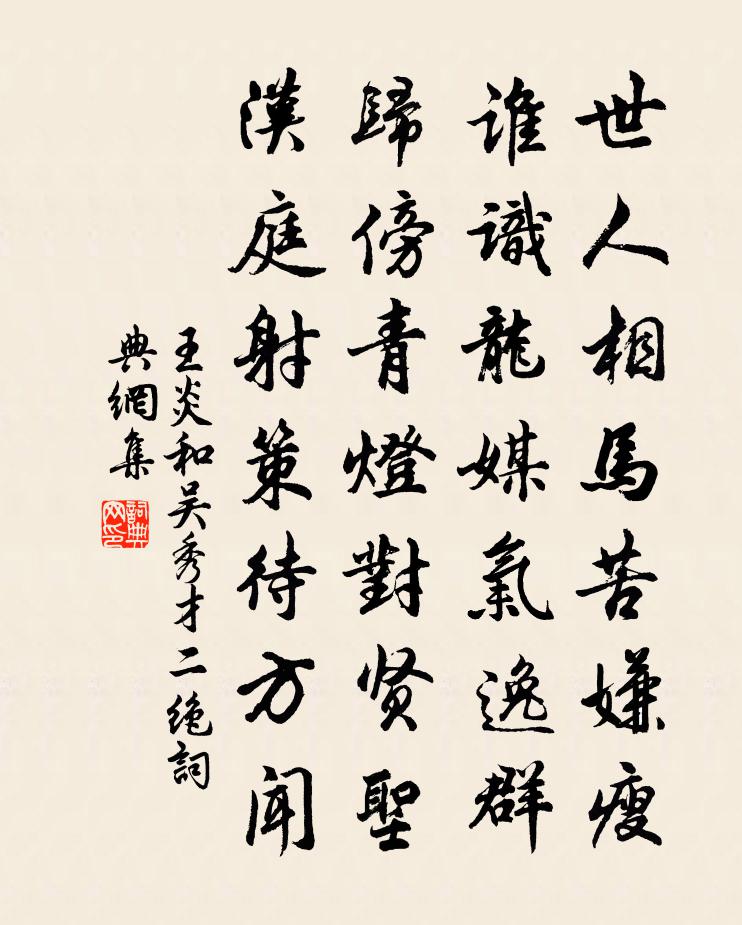 世人相馬苦嫌瘦
誰識龍媒氣逸群
歸傍青燈對贤聖
漢庭射策待方聞
王炎和吴秀才二绝詞
典網集
詞典
网印